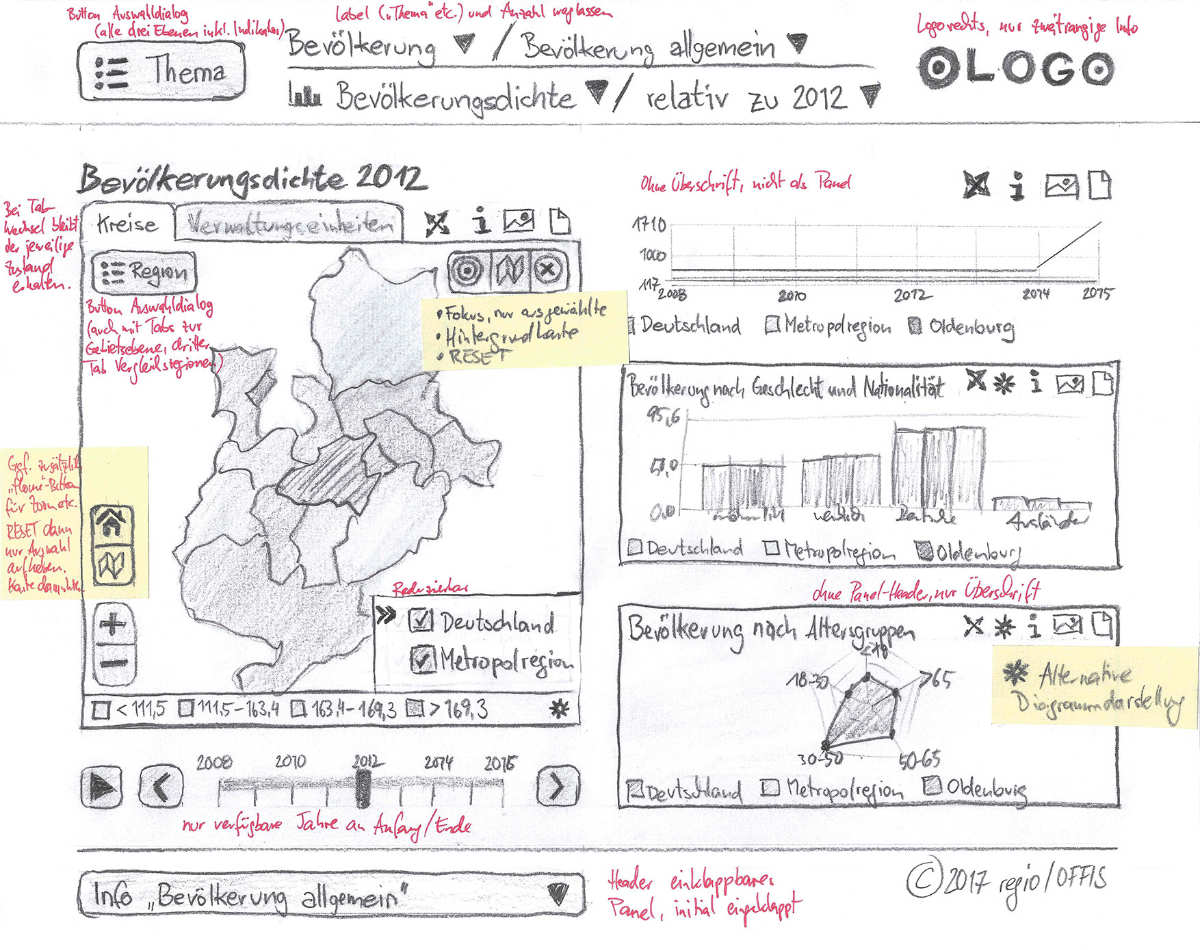 Button Auswahldialog
(alle drei Ebenen inkl. Indikator)
Label („Thema" etc.) und Anzahl weglassen
Logo rechts, nur zweitrangige Info
Thema
Bevölkerung / Bevölkerung allgemein
Bevölkerungsdichte / relativ zu 2012
LOGO
Bevölkerungsdichte 2012
Bei Tab-
wechsel bleibt
der jeweilige
Zustand
erhalten.
Kreise
Verwaltungseinheiten
Region
Button Auswahldialog
(auch mit Tabs zur
Gebietsebene, dritter
Tab Vergleichsregionen)
• Fokus, nur ausgewählte
• Hintergrundkarte
• RESET
Ggf. zusätzlich
„Home"-Button
für Zoom etc.
RESET dann
nur Auswahl
aufheben.
+
−
Reduzierbar
Deutschland
Metropolregion
< 111,5
111,5 – 163,4
163,4 – 169,3
> 169,3
2008 2010 2012 2014 2015
nur verfügbare Jahre an Anfang/Ende
Ohne Überschrift, nicht als Panel
1710
1000
117
2008 2010 2012 2014 2015
Deutschland Metropolregion Oldenburg
Bevölkerung nach Geschlecht und Nationalität
95,6
0,0
männlich weiblich Deutsche Ausländer
Deutschland Metropolregion Oldenburg
ohne Panel-Header, nur Überschrift
Bevölkerung nach Altersgruppen
<18
18-30
>65
30-50
50-65
Deutschland Metropolregion Oldenburg
Alternative
Diagrammdarstellung
Info „Bevölkerung allgemein"
Header einklappbares
Panel, initial eingeklappt
© 2017 regio/OFFIS